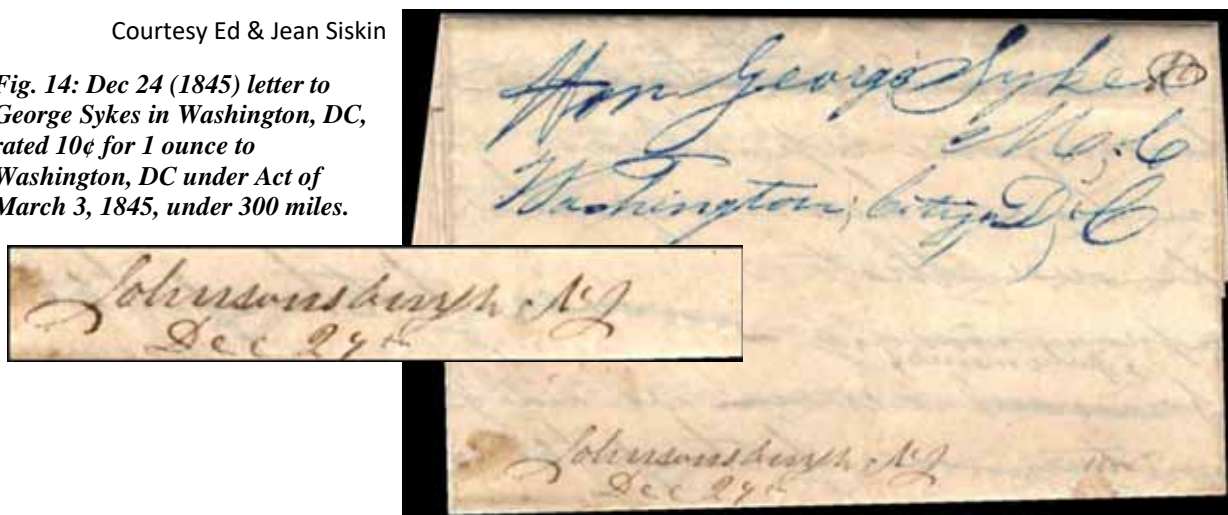 Courtesy Ed & Jean Siskin
Fig. 14: Dec 24 (1845) letter to
George Sykes in Washington, DC,
rated 10¢ for 1 ounce to
Washington, DC under Act of
March 3, 1845, under 300 miles.
Hon George Sykes
M,C
Washington, City, D,C
Johnsonsburgh NJ
Dec
Johnsonsburgh NJ
Dec